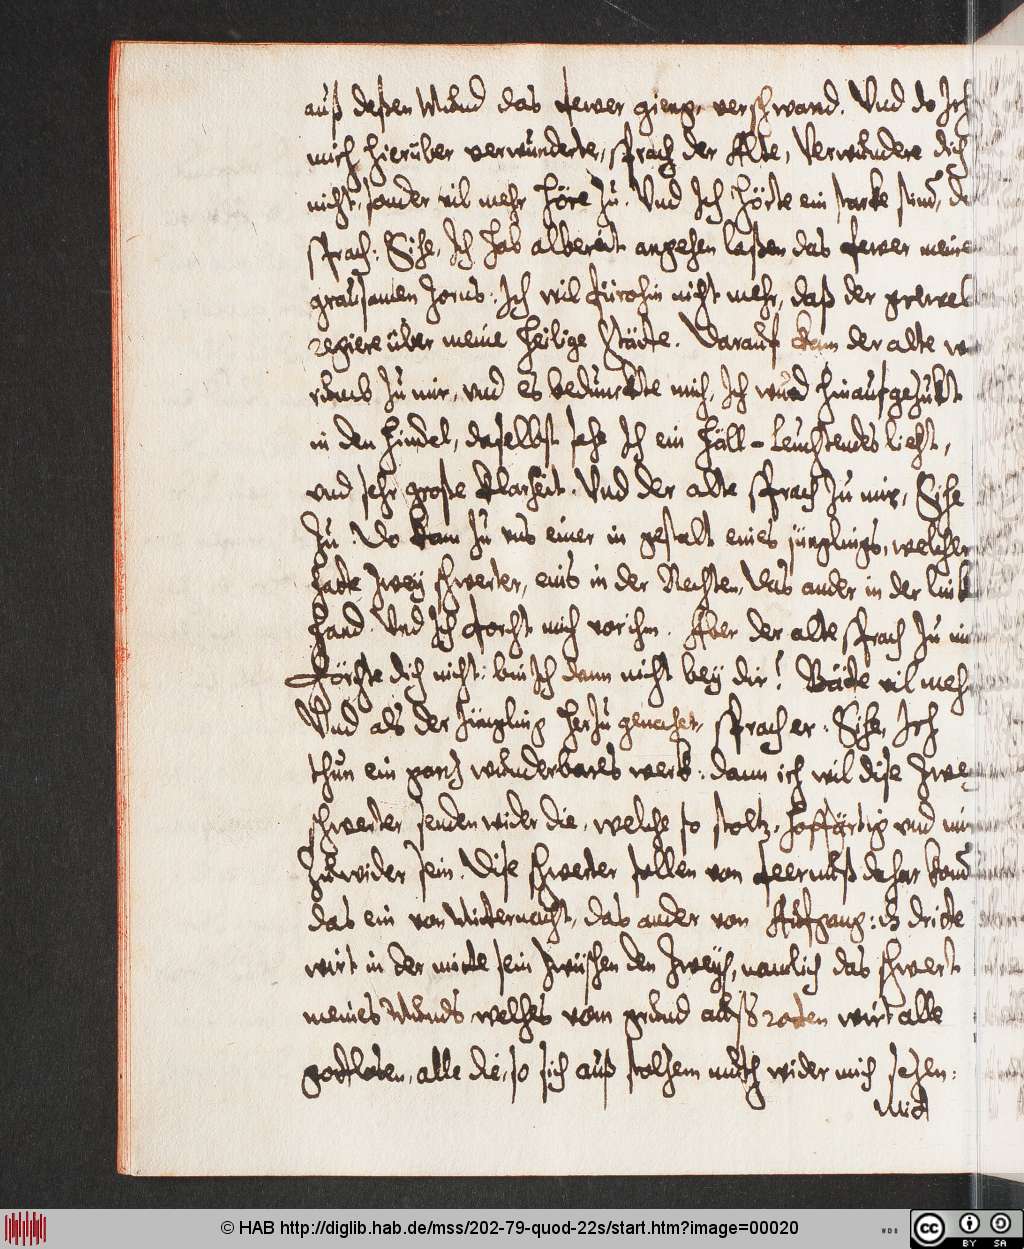 auß deßen Mund das fewer gieng, verschwand. Und do Ich
mich hierüber verwunderte, sprach der Alte, Verwundere dich
nicht, sonder vil mehr höre zu. Und Ich hörte ein starke stim̄, de
sprach: Sihe, Ich hab albereit angehen laßen das fewer meine
grausamen zorns. Ich wil fürohin nicht mehr, daß der grewel
regiere über meine heilige Stätte. Darauf kam der alte
zu mir, und es bedunckte mich, Ich wurd hinaufgezukt
in den himel, daselbst sehe Ich ein häll-leuchtendes liecht,
und sehr große klarheit. Und der alte sprach zu mir, Sihe
zu. Do kam zu uns einer in gestalt eines jünglings, welcher
hatte zwey schwerter, eins in der Rechten, das ander in der link
hand. Und Ich forcht mich vor ihm. Aber der alte sprach zu mir
Förchte dich nicht: bin Ich dann nicht bey dir? Bätte vil mehr
Und als der Jüngling herzu genachet, sprach er: Sihe, Ich
thun ein gantz wunderbares werk: dann ich wil dise zwey
schwerter senden wider die, welche so stoltz, hoffärtig und mir
zuwider sein. Dise schwerter sollen von feernuß dahar kom̄
das ein von Mitternacht, das ander von Aufgang: dz dritte
wirt in der mitte sein zwüschen den zweyē, namlich das schwert
meines Munds welches vom grund auß rotten wirt alle
gottlosen, alle die, so sich auß stolzem muth wider mich sezen:
Mit
© HAB http://diglib.hab.de/mss/202-79-quod-22s/start.htm?image=00020
WDB
cc BY SA